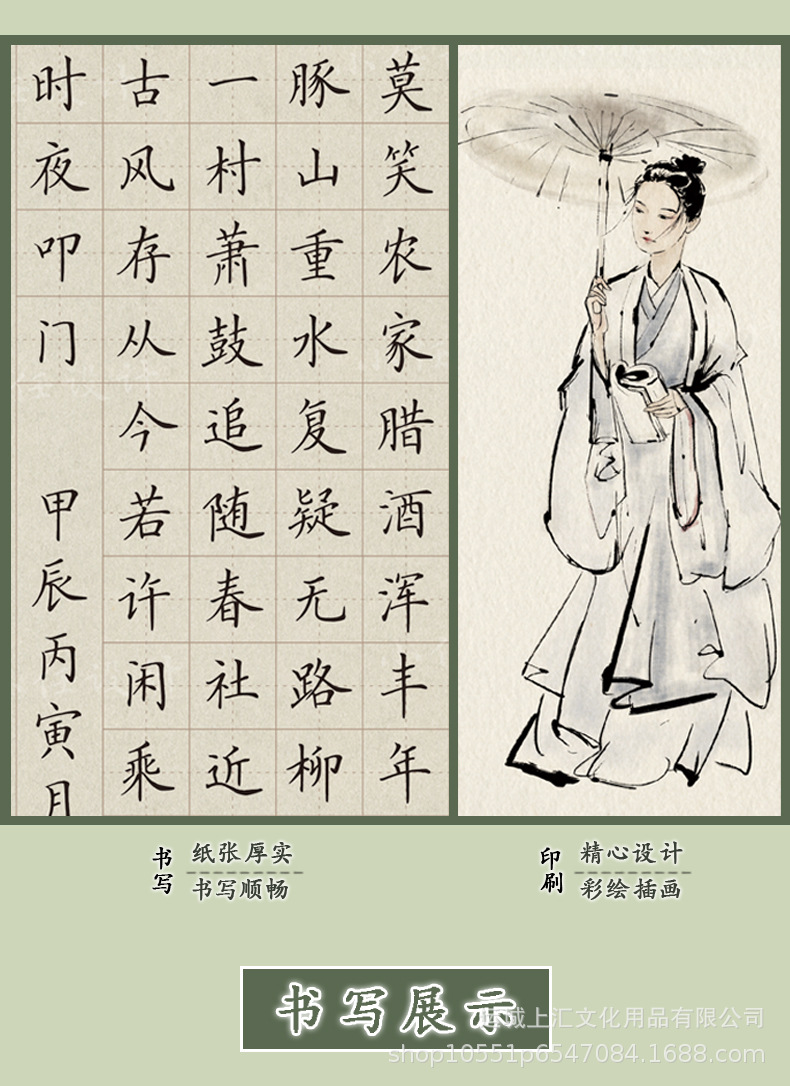 莫笑农家腊酒浑丰年
豚山重水复疑无路柳
一村萧鼓追随春社近
古风存从今若许闲乘
时夜叩门
甲辰丙寅月
书写
纸张厚实
书写顺畅
印刷
精心设计
彩绘插画
书写展示
城上汇文化用品有限公司
shop10551p6547084.1688.com